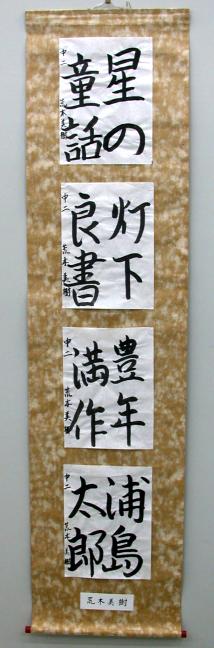 星の
童話
中二 荒木美樹
灯下
良書
中二 荒木美樹
豊年
満作
中二 荒木美樹
浦島
太郎
中二 荒木美樹
荒木美樹